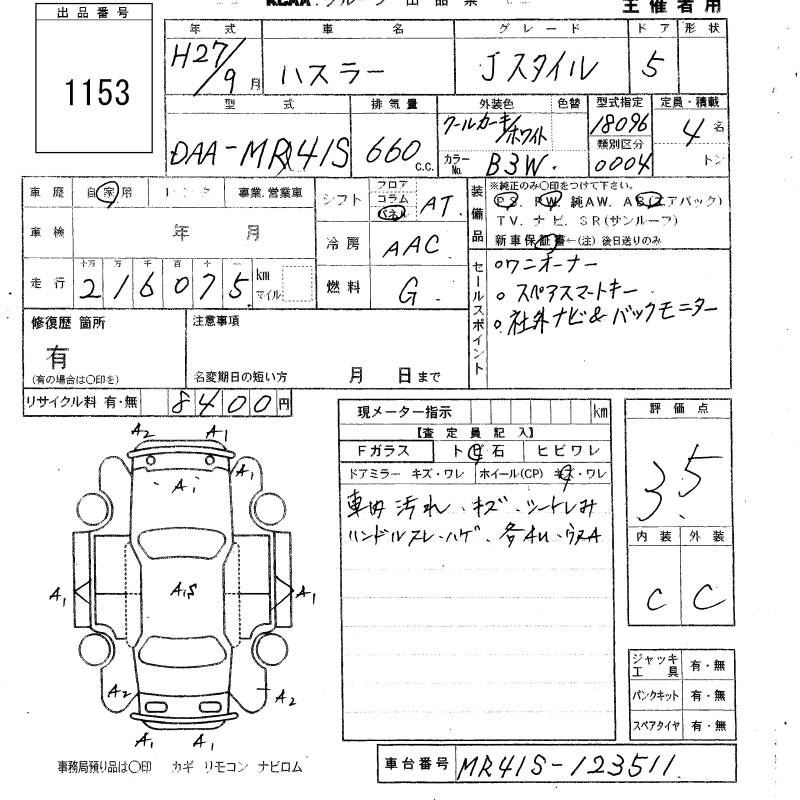 出品番号
1153
KCAA グループ 出品票
主催者用
年式 車名 グレード ドア 形状
H27/9月 ハスラー Jスタイル 5
型式 排気量 外装色 色替 型式指定 定員・積載
DAA-MR41S 660 c.c. クールカーキ/ホワイト 18096 4名
カラーNo. B3W. 類別区分 0004 トン
車歴 自家用 レンタ 事業.営業車
シフト フロア コラム パネ AT.
装備品 ※純正のみ〇印をつけて下さい。
P.S. P.W. 純AW. AB(エアバック)
TV. ナビ. SR(サンルーフ)
新車保証書←(注)後日送りのみ
車検 年 月
冷房 AAC
走行 十万 万 千 百 十 一
216075 km マイル
燃料 G.
セールスポイント
○ワンオーナー
○スペアスマートキー
○社外ナビ&バックモニター
修復歴 箇所
有
(有の場合は〇印を)
注意事項
名変期日の短い方 月 日まで
リサイクル料 有・無 8400円
現メーター指示 km
【査定員記入】
Fガラス ト ビ 石 ヒビワレ
ドアミラー キズ・ワレ ホイール(CP) キズ・ワレ
車内汚れ.キズ.シートしみ
ハンドルスレ.ハゲ.各4U.ウスA
評価点
3.5
内装 外装
C C
A2 A1
A1
A1 A1S A1
A2 A2
A1 A1
ジャッキ工具 有・無
パンクキット 有・無
スペアタイヤ 有・無
事務局預り品は〇印 カギ リモコン ナビロム
車台番号 MR41S-123511